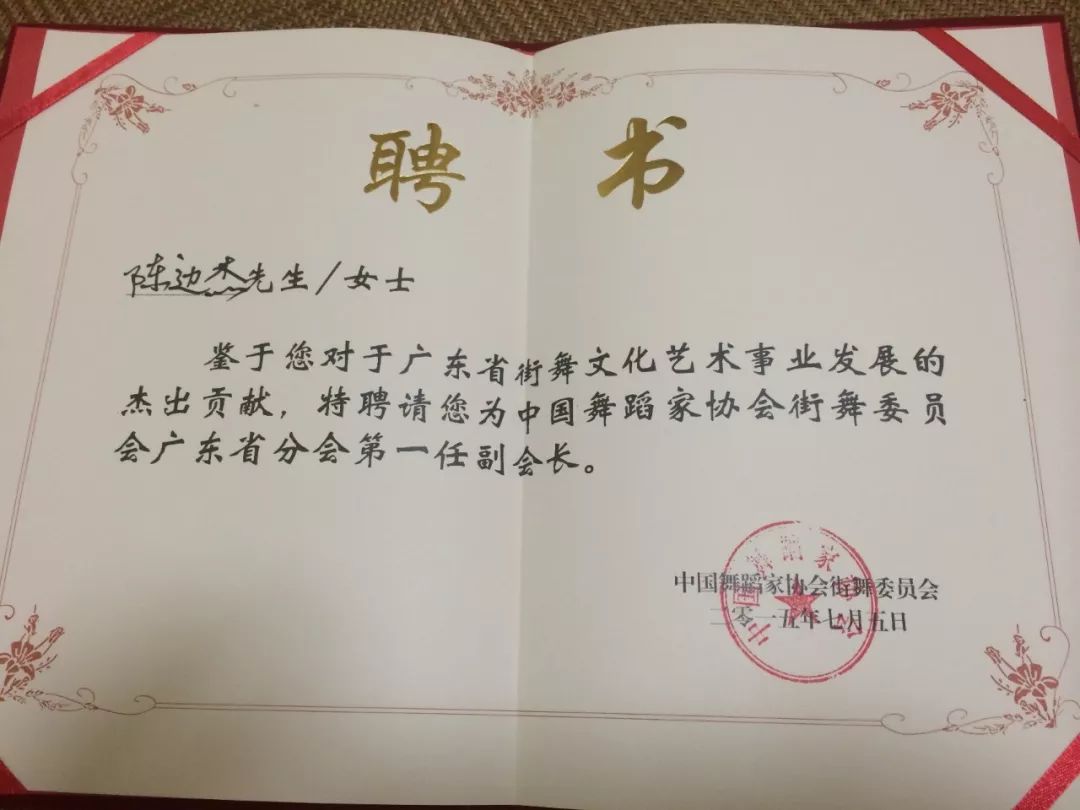 聘 书
陈边杰先生/女士
鉴于您对于广东省街舞文化艺术事业发展的
杰出贡献，特聘请您为中国舞蹈家协会街舞委员
会广东省分会第一任副会长。
中国舞蹈家协会街舞委员会
二零一五年七月五日
中国舞蹈家协会